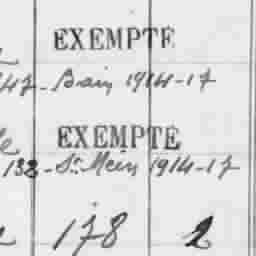 EXEMPTE
47 - Bain 1914-17
EXEMPTE
132 - St. Méen 1914-17
178 2